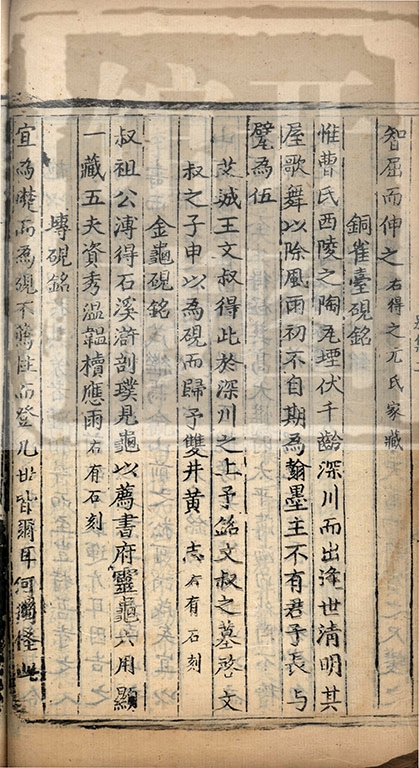 智屈而伸之右得之元氏家藏
銅雀臺硯銘
惟曹氏西陵之陶瓦埋伏千齡深川而出逢世清明其
屋歌舞以除風雨初不自期為翰墨主不有君子長与
璧為伍
芝城王文叔得此於深川之上予銘文叔之墓啓文
叔之子申以為硯而歸予雙井黃 志右有石刻
金龜硯銘
叔祖公溥得石溪滸剖璞見龜以薦書府靈龜六用顯
一藏五夫資秀溫韞櫝應雨右有石刻
塼硯銘
宜為礎而為硯不薦柱而登几世皆爾耳何獨怪此